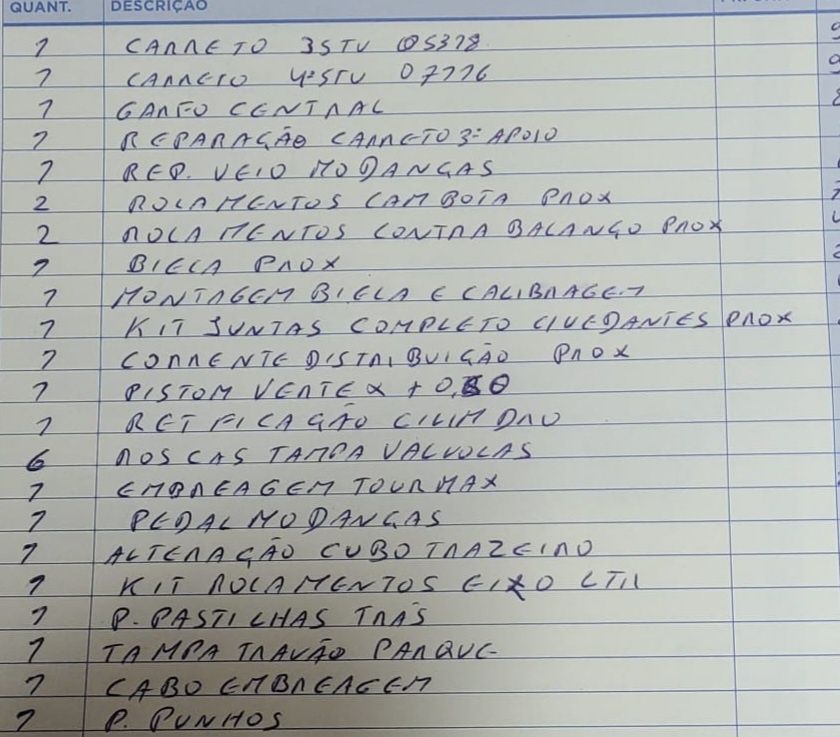 QUANT. DESCRIÇÃO
1 CARRETO 3STU 05378
1 CARRETO 4ªSTU 07776
1 GARFO CENTRAL
1 REPARAÇÃO CARRETO 3º APOIO
1 REP. VEIO MODANÇAS
2 ROLAMENTOS CAMBOTA PROX
2 ROLAMENTOS CONTRA BALANÇO PROX
1 BIELA PROX
1 MONTAGEM BIELA E CALIBRAGEM
1 KIT JUNTAS COMPLETO C/VEDANTES PROX
1 CORRENTE DISTRIBUIÇÃO PROX
1 PISTOM VERTEX + 0,50
1 RETIFICAÇÃO CILIMDRO
6 ROSCAS TAMPA VALVOLAS
1 EMBREAGEM TOURMAX
1 PEDAL MODANÇAS
1 ALTERAÇÃO CUBO TRAZEIRO
1 KIT ROLAMENTOS EIXO LTR
1 P. PASTILHAS TRÁS
1 TAMPA TRAVÃO PARQUE
1 CABO EMBREAGEM
1 P. PUNHOS